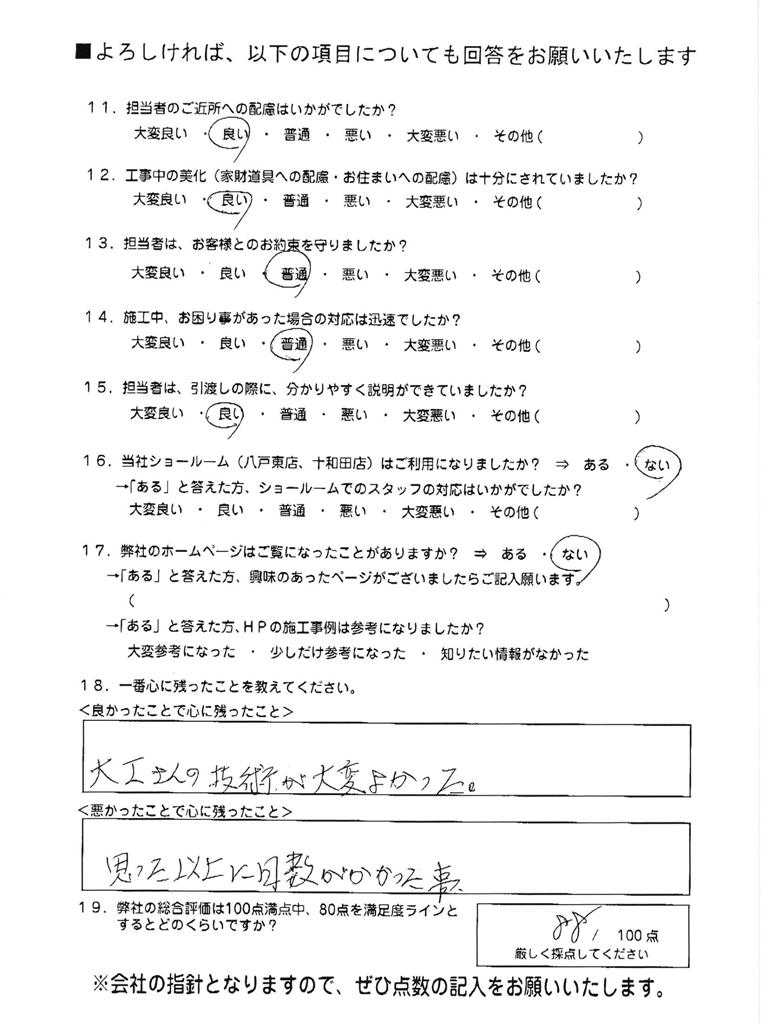 ■よろしければ、以下の項目についても回答をお願いいたします
11．担当者のご近所への配慮はいかがでしたか？
大変良い ・ 良い ・ 普通 ・ 悪い ・ 大変悪い ・ その他（　　　　　）
12．工事中の美化（家財道具への配慮・お住まいへの配慮）は十分にされていましたか？
大変良い ・ 良い ・ 普通 ・ 悪い ・ 大変悪い ・ その他（　　　　　）
13．担当者は、お客様とのお約束を守りましたか？
大変良い ・ 良い ・ 普通 ・ 悪い ・ 大変悪い ・ その他（　　　　　）
14．施工中、お困り事があった場合の対応は迅速でしたか？
大変良い ・ 良い ・ 普通 ・ 悪い ・ 大変悪い ・ その他（　　　　　）
15．担当者は、引渡しの際に、分かりやすく説明ができていましたか？
大変良い ・ 良い ・ 普通 ・ 悪い ・ 大変悪い ・ その他（　　　　　）
16．当社ショールーム（八戸東店、十和田店）はご利用になりましたか？ ⇒ ある ・ ない
→「ある」と答えた方、ショールームでのスタッフの対応はいかがでしたか？
大変良い ・ 良い ・ 普通 ・ 悪い ・ 大変悪い ・ その他（　　　　　）
17．弊社のホームページはご覧になったことがありますか？ ⇒ ある ・ ない
→「ある」と答えた方、興味のあったページがございましたらご記入願います。
（　　　　　）
→「ある」と答えた方、HPの施工事例は参考になりましたか？
大変参考になった ・ 少しだけ参考になった ・ 知りたい情報がなかった
18．一番心に残ったことを教えてください。
＜良かったことで心に残ったこと＞
大工さんの技術が大変よかった。
＜悪かったことで心に残ったこと＞
思った以上に日数がかかった事
19．弊社の総合評価は100点満点中、80点を満足度ラインと
するとどのくらいですか？
88/ 100点
厳しく採点してください
※会社の指針となりますので、ぜひ点数の記入をお願いいたします。